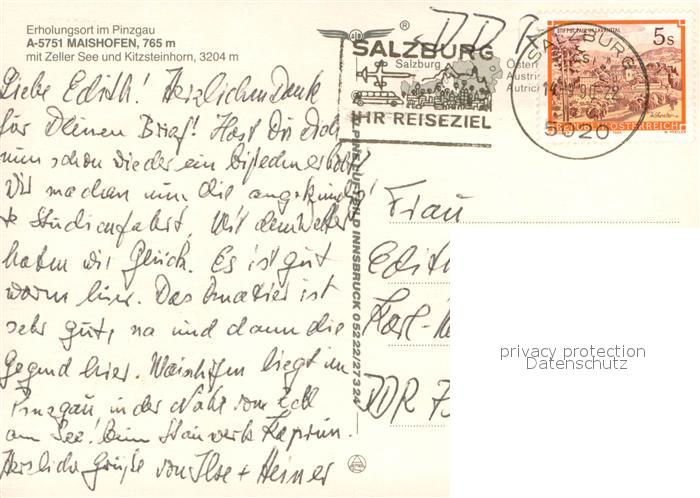 Erholungsort im Pinzgau
A-5751 MAISHOFEN, 765 m
mit Zeller See und Kitzsteinhorn, 3204 m
Liebe Edith! Herzlichen Dank
für Deinen Brief! Hast Du Dich
nun schon wieder ein bißchen erholt?
Wir machen nun die angekündig-
te Studienfahrt. Mit dem Wetter
haben wir Glück. Es ist gut
warm hier. Das Quartier ist
sehr gut, na und dann die
Gegend hier. Maishofen liegt im
Pinzgau in der Nähe von Zell
am See! Beim Stauwerk Kaprun.
Herzliche Grüße von Ilse + Heiner
ALPINE LUFTBILD INNSBRUCK 05222/27324
DDR
SALZBURG
Salzburg
IHR REISEZIEL
Öster
Austri
Autric
SALZBURG
90
5020
5s
REPUBLIK ÖSTERREICH
Frau
Edit
Karl-
DDR 7
privacy protection
Datenschutz